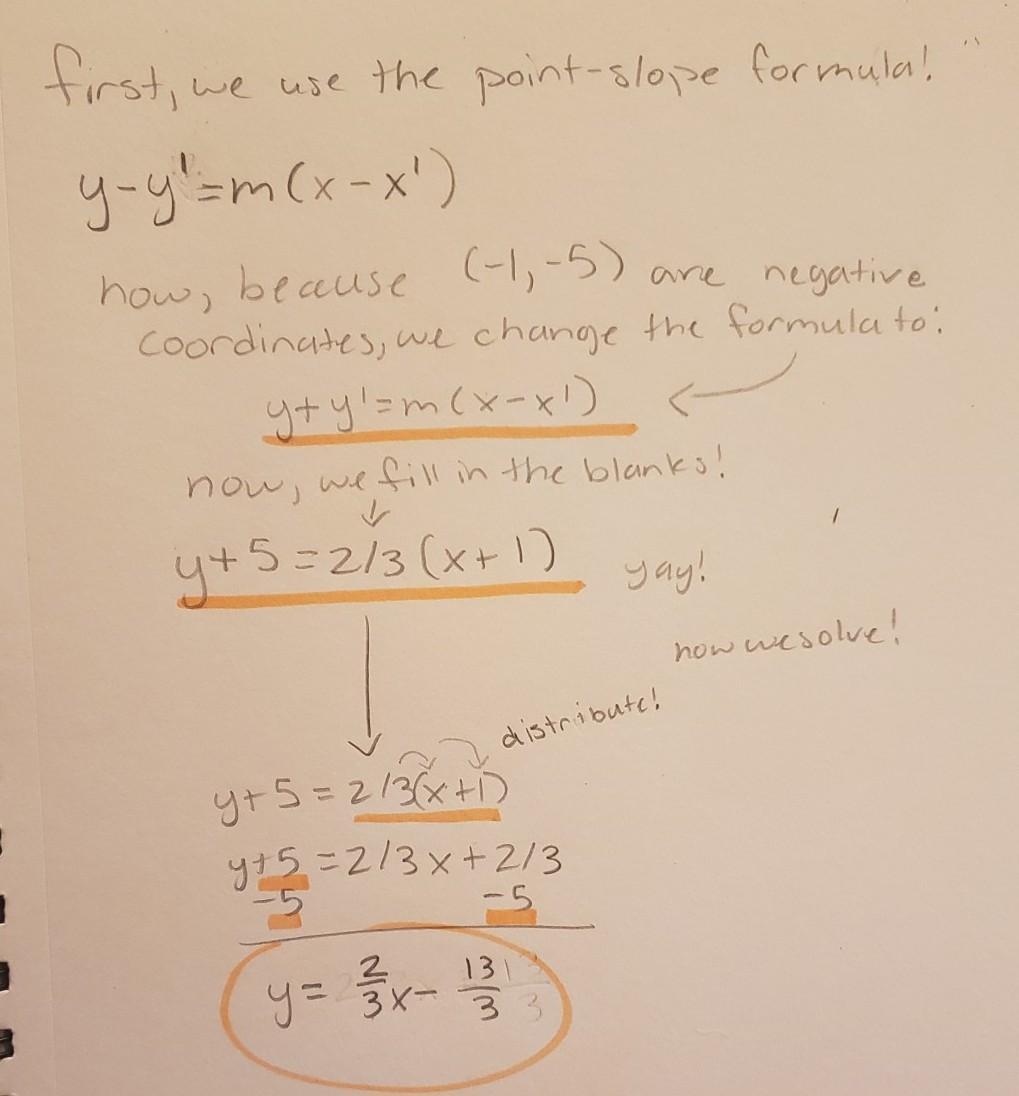 first, we use the point-slope formula!
y-y'=m(x-x')
now, because (-1,-5) are negative
coordinates, we change the formula to:
y+y'=m(x-x')
now, we fill in the blanks!
y+5=2/3(x+1) yay!
now we solve!
distribute!
y+5=2/3(x+1)
y+5=2/3x+2/3
-5 -5
y= 2/3x- 13/3